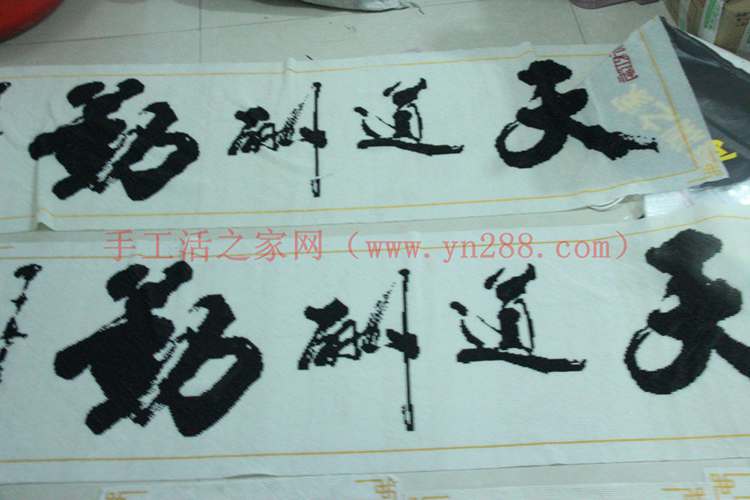 天道酬勤
手工活之家网（www.yn288.com）
天道酬勤